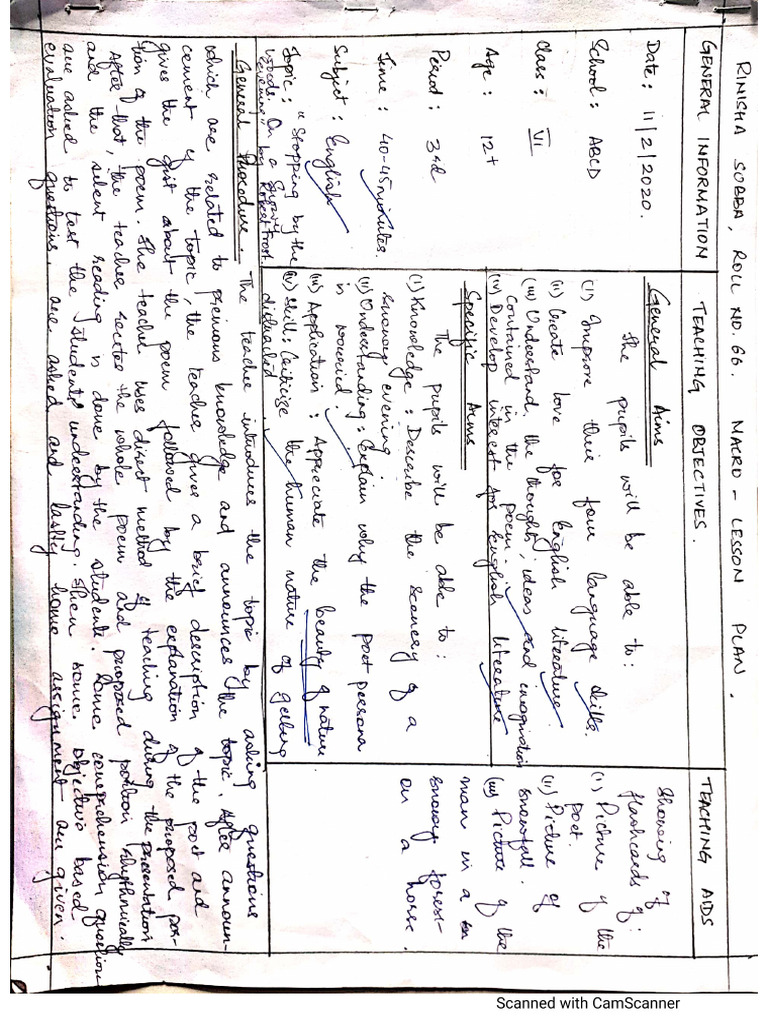 RINISHA SOBBA, ROLL NO. 66. MACRO-LESSON PLAN.
GENERAL INFORMATION
Date: 11/2/2020.
School: ABCD
Class: VI
Age: 12+
Period: 3rd
Time: 40-45 minutes.
Subject: English
Topic: "Stopping by the
woods On a Snowy
Evening" by Robert Frost.
TEACHING OBJECTIVES.
General Aims
The pupils will be able to:
(i) Improve their four language skills.
(ii) Create love for English literature.
(iii) Understand the thoughts, ideas and imagination
contained in the poem.
(iv) Develop interest for English literature
Specific Aims
The pupils will be able to:
(i) Knowledge: Describe the scenery of a
snowy evening.
(ii) Understanding: Explain why the poet persona
is worried.
(iii) Application: Appreciate the beauty of nature
(iv) Skill: Criticize the human nature of getting
distracted.
TEACHING AIDS
Showing of
flashcards of:
(i) Picture of the
poet.
(ii) Picture of
snowfall.
(iii) Picture of the
man in a
snowy forest
on a horse.
General Procedure. The teacher introduces the topic by asking questions
which are related to previous knowledge and announces the topic. After announ-
cement of the topic, the teacher gives a brief description of the poet and
gives the gist about the poem followed by the explanation of the proposed por-
tion of the poem. The teacher uses direct method of teaching during the presentation
After that, the teacher recites the whole poem and proposed portion rhythmically
and the silent reading is done by the students. Some comprehension question
are asked to test the students understanding. Then some objective based
evaluation questions are asked and lastly home assignment are given.